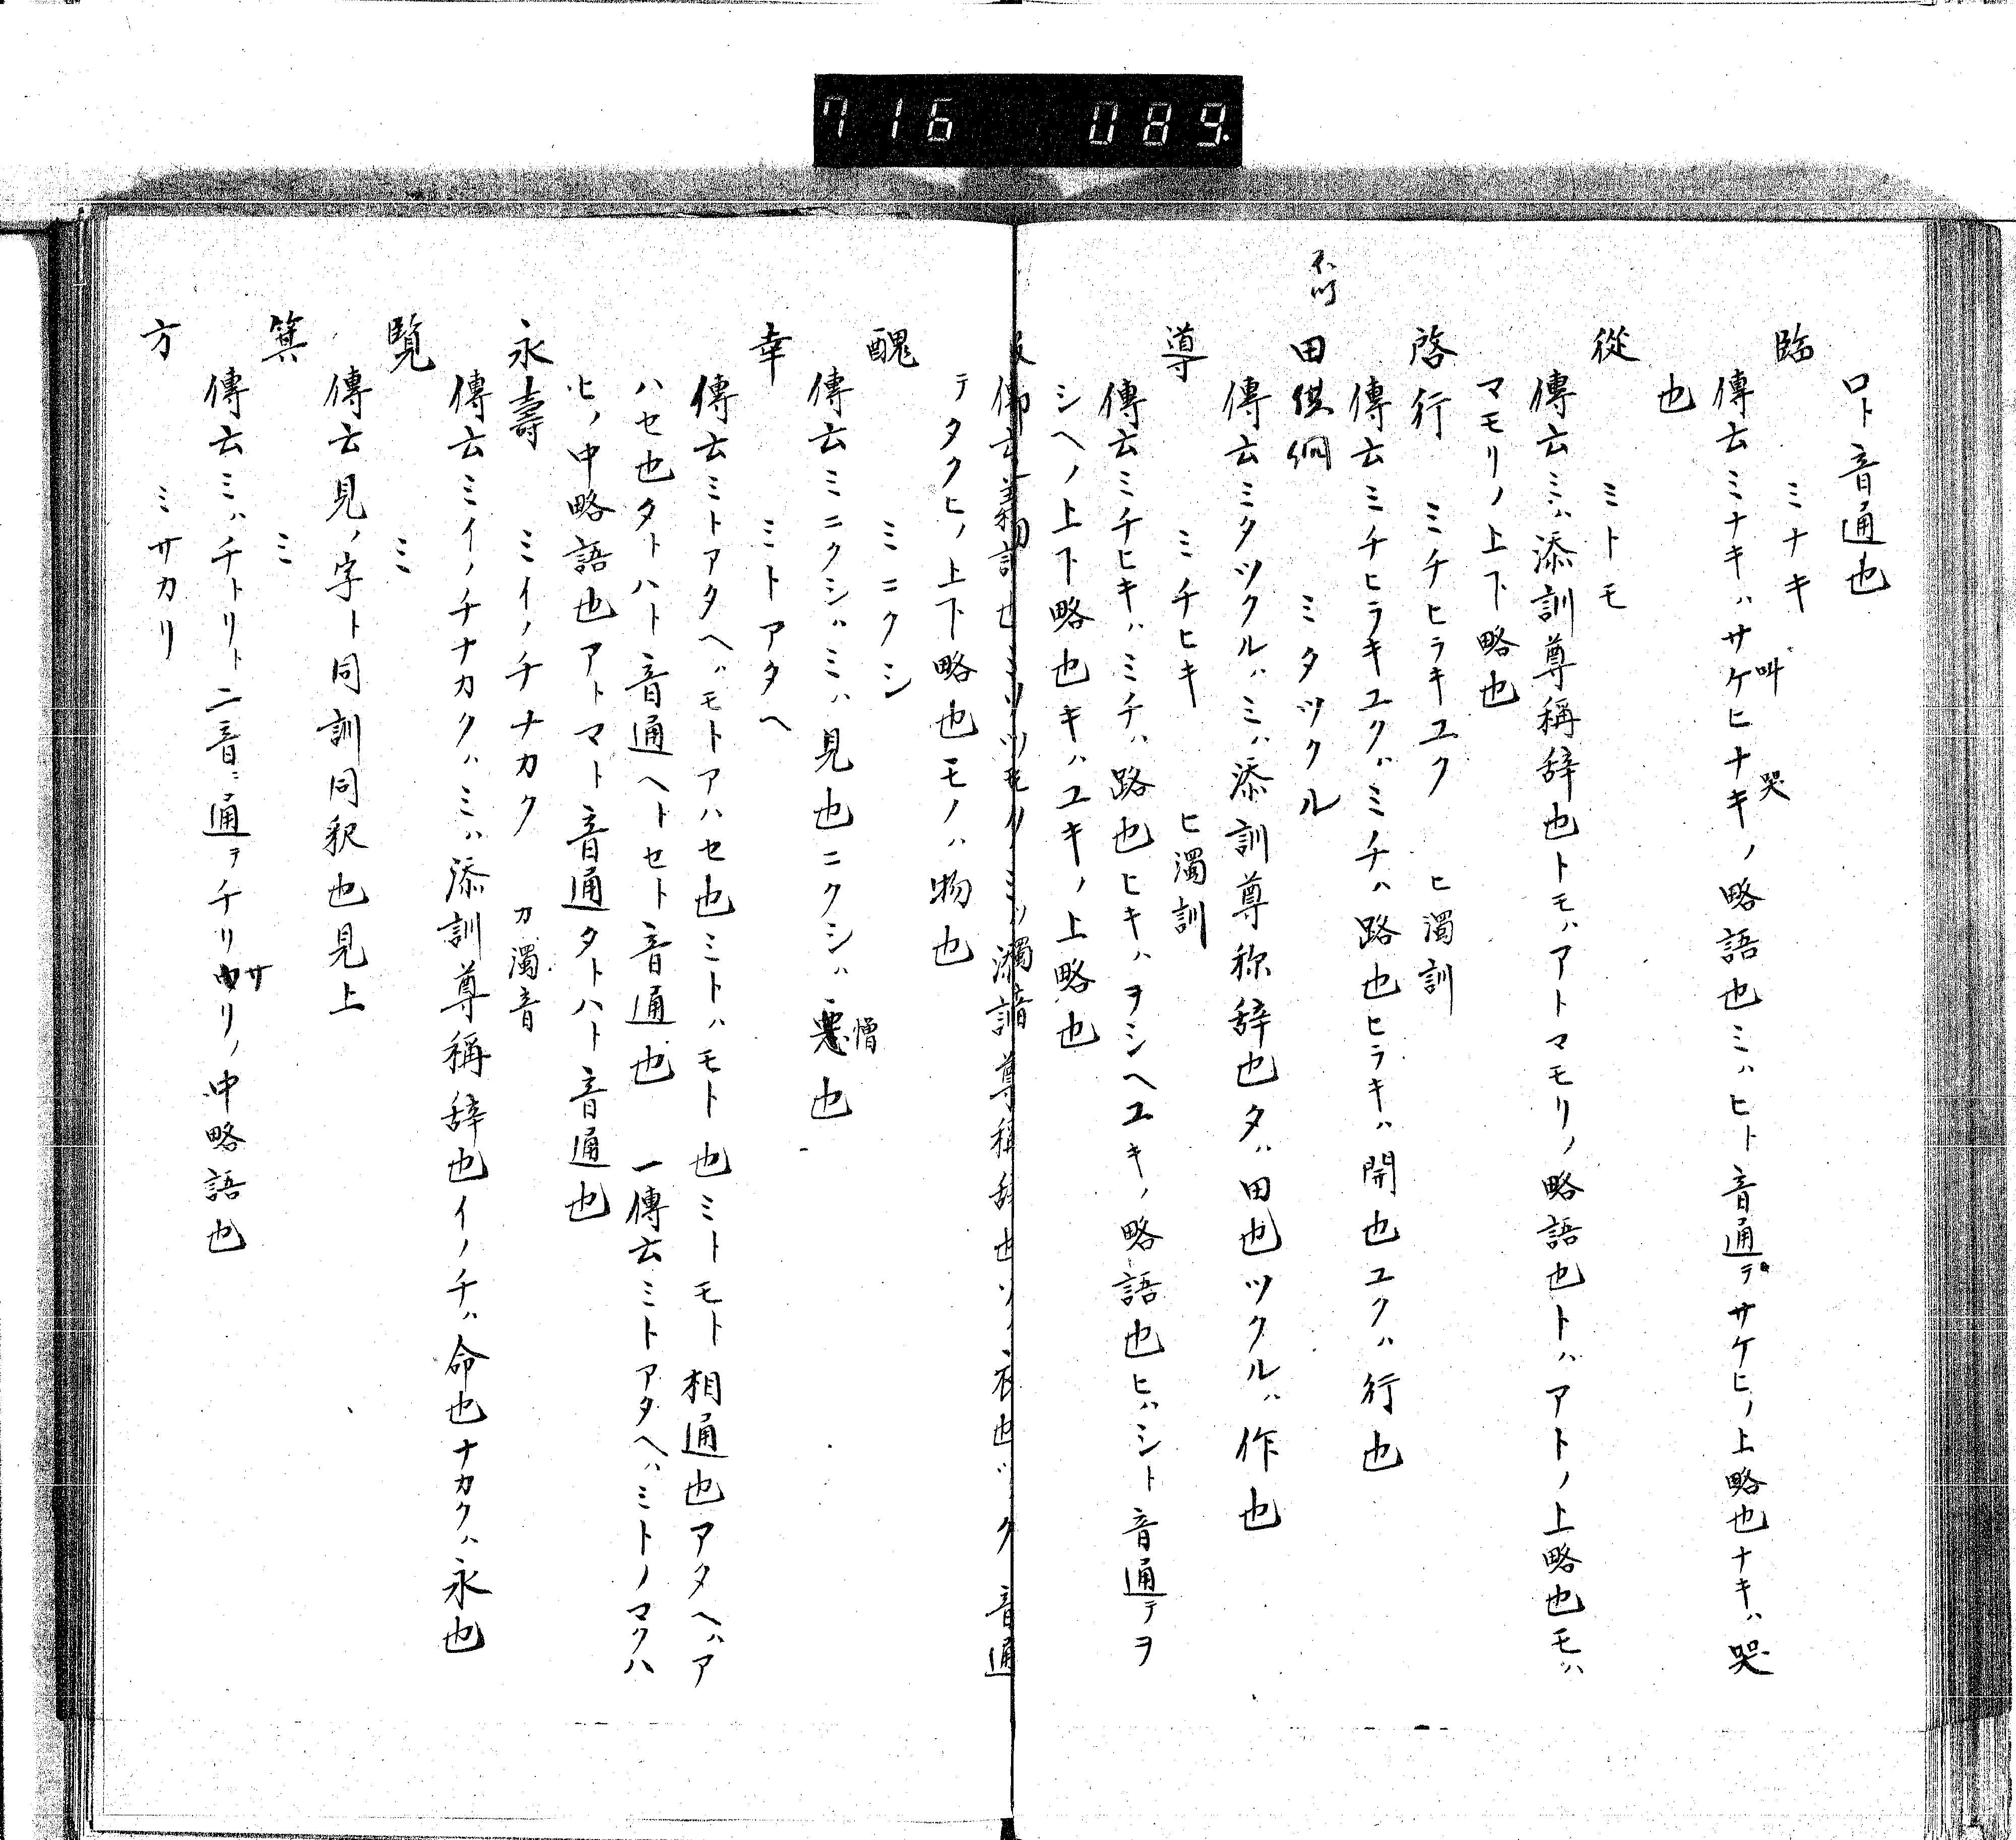 716 089.
ロト音通也
臨 ミナキ
傳云ミナキハサケヒナキノ略語也ミハヒト音通テサケヒノ上略也ナキハ哭
叫 哭
也
從 ミトモ
傳云ミハ添訓尊稱辞也トモハアトマモリノ略語也トハアトノ上略也モハ
マモリノ上下略也
啓行 ミチヒラキユク ヒ濁訓
傳云ミチヒラキユクハミチハ路也ヒラキハ開也ユクハ行也
田供佃 ミタツクル
傳云ミタツクルハミハ添訓尊称辞也タハ田也ツクルハ作也
導 ミチヒキ ヒ濁訓
傳云ミチヒキハミチハ路也ヒキハヲシヘユキノ略語也ヒハシト音通テヲ
シヘノ上下略也キハユキノ上略也
傳云 尊稱辞也ソハ衣也 ク音通
テタクヒノ上下略也モノハ物也
醜 ミニクシ
傳云ミニクシハミハ見也ニクシハ悪也
憎
幸 ミトアタヘ
傳云ミトアタヘハモトアハセ也ミトハモト也ミトモト相通也アタヘハア
ハセ也タトハト音通ヘトセト音通也 一傳云ミトアタヘハミトノマクハ
ヒノ中略語也アトマト音通タトハト音通也
永壽 ミイノチナカク カ濁音
傳云ミイノチナカクハミハ添訓尊稱辞也イノチハ命也ナカクハ永也
覽 ミ
傳云見ノ字ト同訓同釈也見上
箕 ミ
傳云ミハチトリト二音ニ通テチリサリノ中略語也
方 ミサカリ